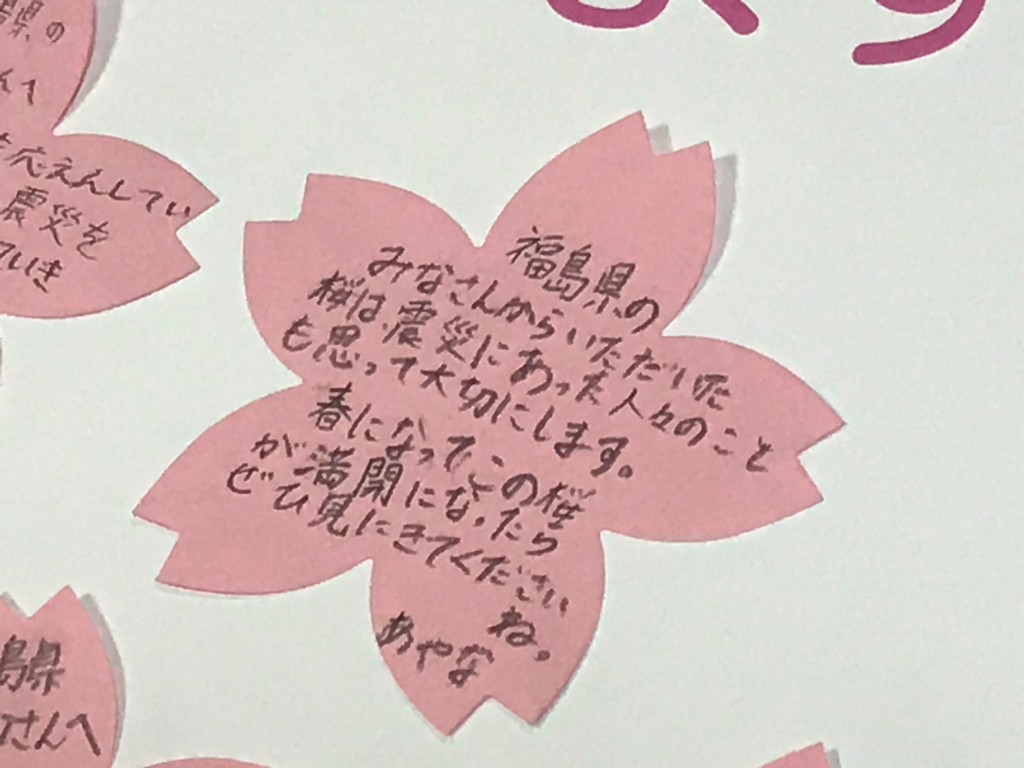 福島県の
みなさんからいただいた
桜は、震災にあった人々のこと
も思って大切にします。
春になってこの桜
が満開になったら
ぜひ見にきてください
ね。
あやな
応えんしてい
震災を
ていき
島県
さんへ
県の